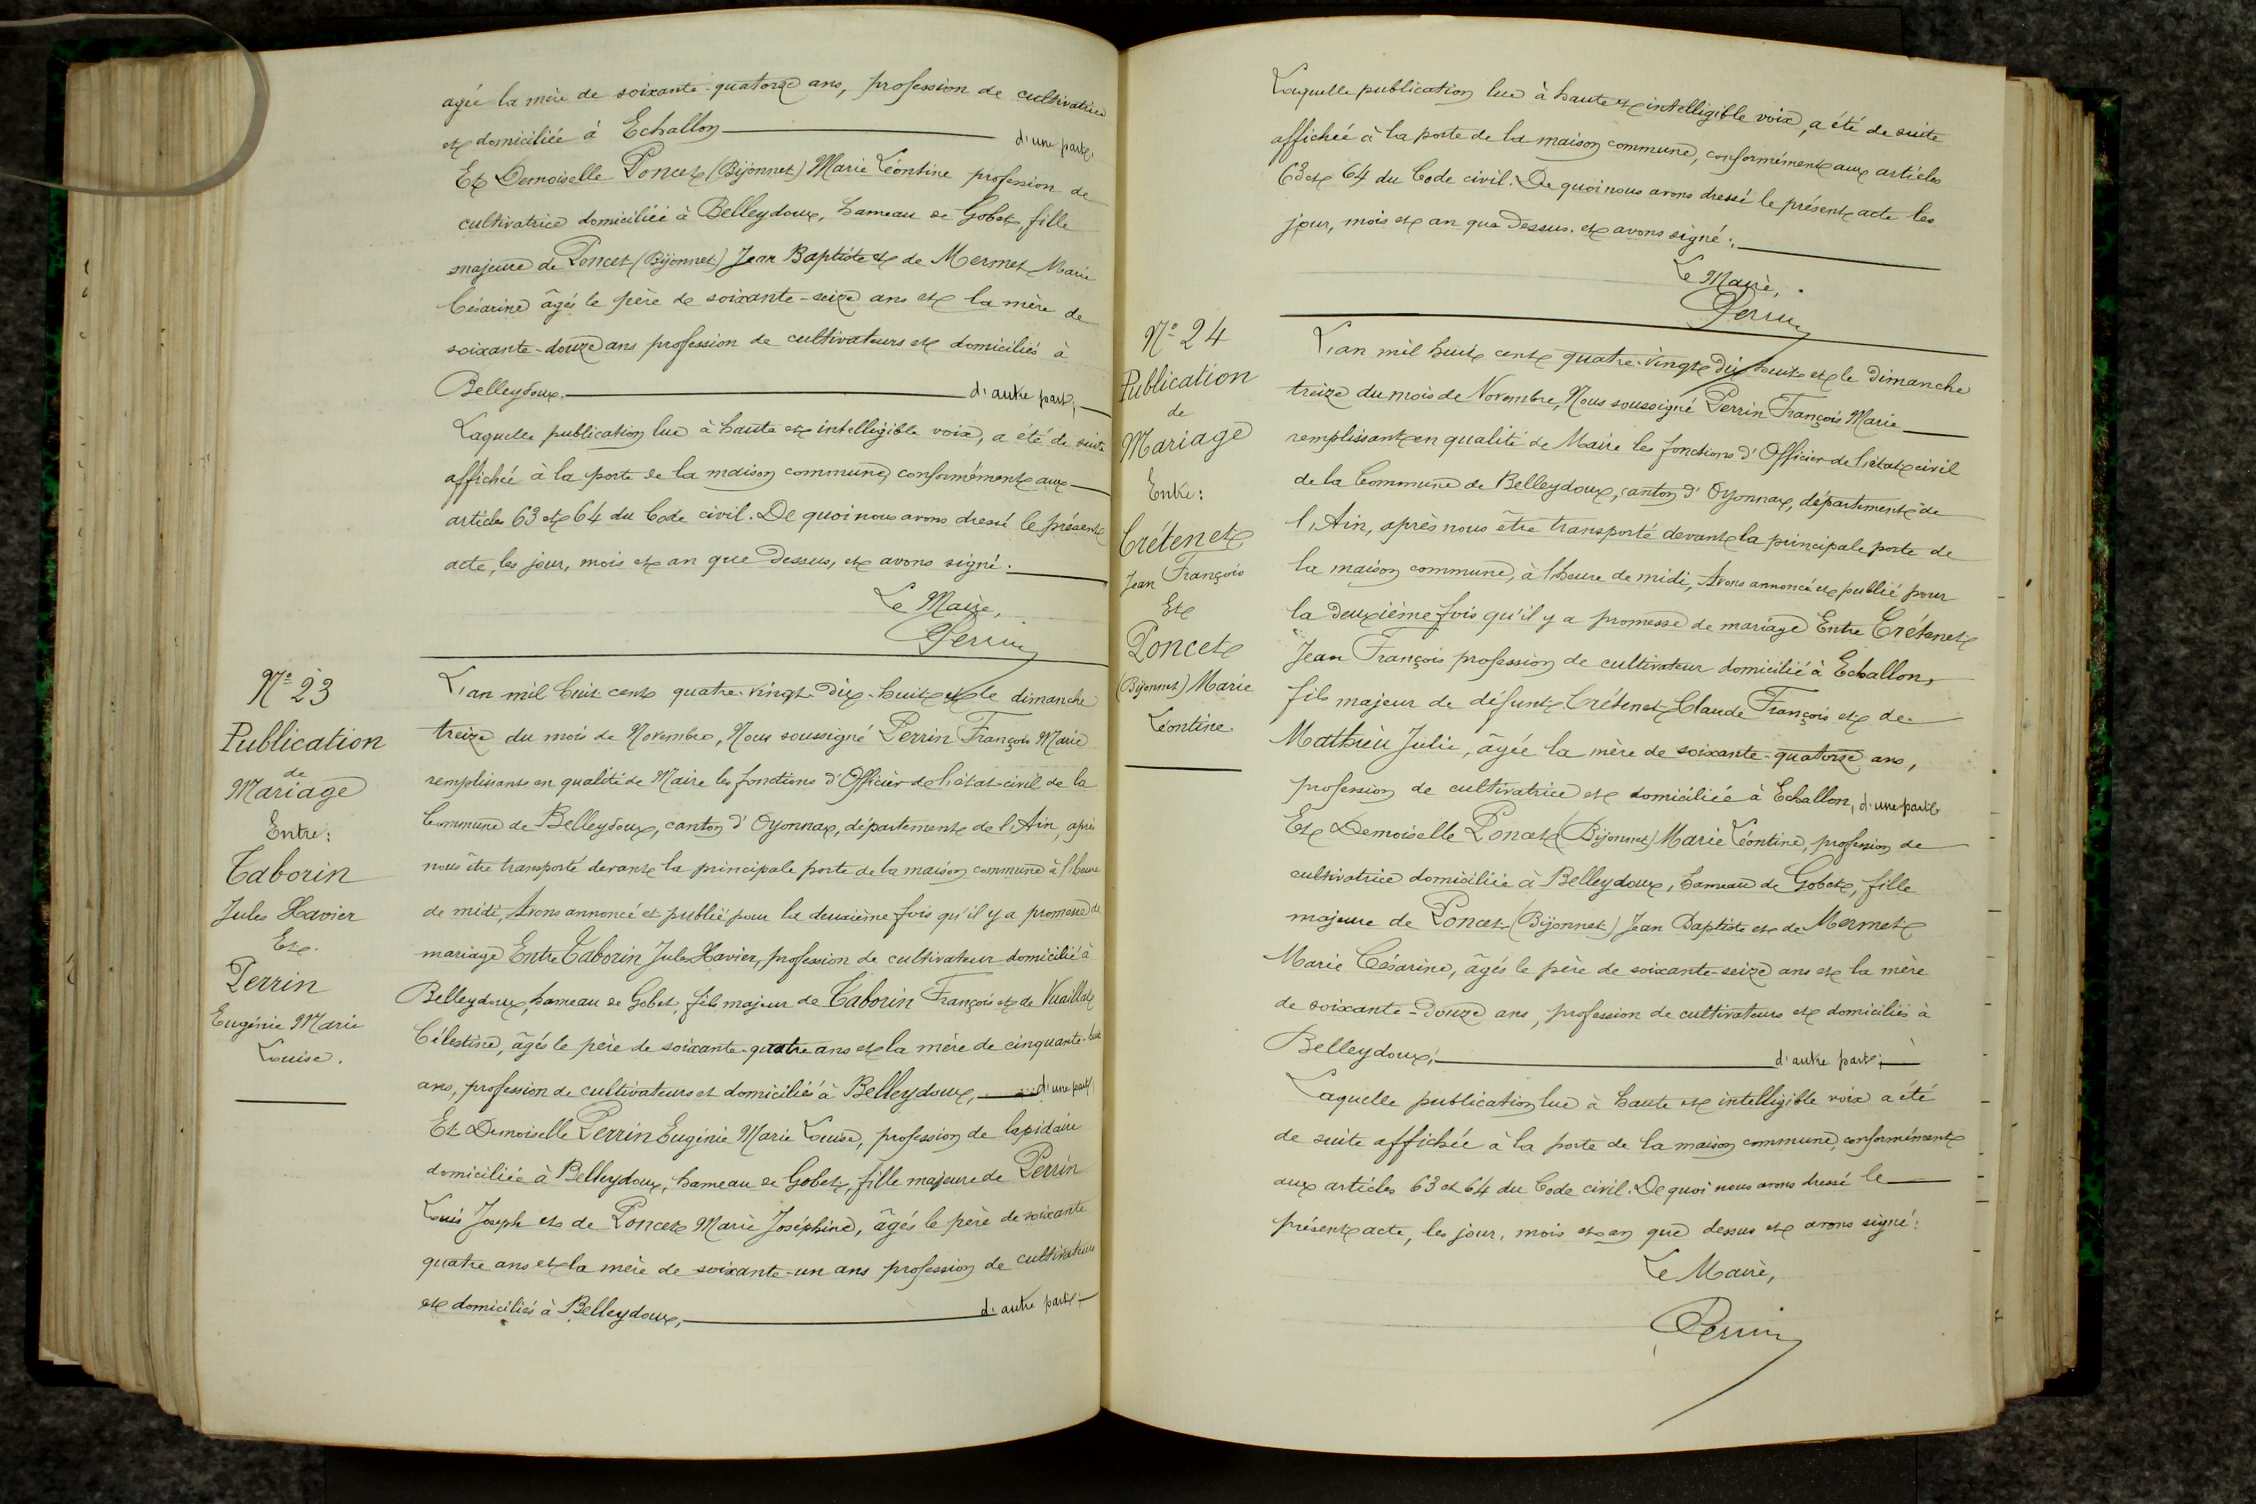 agée la mère de soixante-quatorze ans, profession de cultivatrice
et domiciliée à Echallon d'une part.
Et Demoiselle Poncet (Bijonnet) Marie Léontine profession de
cultivatrice domiciliée à Belleydoux, hameau de Gobet, fille
majeure de Poncet (Bijonnet) Jean Baptiste et de Mermet Marie
Césarine âgés le père de soixante-seize ans et la mère de
soixante-douze ans profession de cultivateurs et domiciliés à
Belleydoux. d'autre part;
Laquelle publication lue à haute et intelligible voix, a été de suite
affichée à la porte de la maison commune, conformément aux
articles 63 et 64 du Code civil. De quoi nous avons dressé le présent
acte, les jour, mois et an que dessus, et avons signé:
Le Maire,
Perrin
Nº 23
Publication
de
Mariage
Entre:
Taborin
Jules Xavier
Et
Perrin
Eugénie Marie
Louise.
L'an mil huit cent quatre-vingt-dix-huit et le dimanche
treize du mois de Novembre, Nous soussigné Perrin François Marie
remplissant en qualité de Maire les fonctions d'Officier de l'état-civil de la
Commune de Belleydoux, canton d'Oyonnax, département de l'Ain, après
nous être transporté devant la principale porte de la maison commune à l'heure
de midi, Avons annoncé et publié pour la deuxième fois qu'il y a promesse de
mariage Entre Taborin Jules Xavier, profession de cultivateur domicilié à
Belleydoux, hameau de Gobet, fils majeur de Taborin François et de Vuaillat
Célestine, âgés le père de soixante-quatre ans et la mère de cinquante-huit
ans, profession de cultivateurs et domiciliés à Belleydoux, d'une part,
Et Demoiselle Perrin Eugénie Marie Louise, profession de lapidaire
domiciliée à Belleydoux, hameau de Gobet, fille majeure de Perrin
Louis Joseph et de Poncet Marie Joséphine, âgés le père de soixante
quatre ans et la mère de soixante-un ans profession de cultivateurs
et domiciliés à Belleydoux, d'autre part;
Laquelle publication lue à haute et intelligible voix, a été de suite
affichée à la porte de la maison commune, conformément aux articles
63 et 64 du Code civil. De quoi nous avons dressé le présent acte les
jour, mois et an que dessus. et avons signé:
Le Maire,
Perrin
Nº 24
Publication
de
Mariage
Entre:
Crétenet
Jean François
Et
Poncet
(Bijonnet) Marie
Léontine
L'an mil huit cent quatre-vingt dix huit et le dimanche
treize du mois de Novembre, Nous soussigné Perrin François Marie
remplissant en qualité de Maire les fonctions d'Officier de l'état civil
de la Commune de Belleydoux, canton d'Oyonnax, département de
l'Ain, après nous être transporté devant la principale porte de
la maison commune, à l'heure de midi, Avons annoncé et publié pour
la deuxième fois qu'il y a promesse de mariage Entre Crétenet
Jean François profession de cultivateur domicilié à Echallon,
fils majeur de défunt Crétenet Claude François et de
Mathieu Julie, âgée la mère de soixante-quatorze ans,
profession de cultivatrice et domiciliée à Echallon, d'une part
Et Demoiselle Poncet (Bijonnet) Marie Léontine, profession de
cultivatrice domiciliée à Belleydoux, hameau de Gobet, fille
majeure de Poncet (Bijonnet) Jean Baptiste et de Mermet
Marie Césarine, âgés le père de soixante-seize ans et la mère
de soixante-douze ans, profession de cultivateurs et domiciliés à
Belleydoux, d'autre part;
Laquelle publication lue à haute et intelligible voix a été
de suite affichée à la porte de la maison commune, conformément
aux articles 63 et 64 du Code civil. De quoi nous avons dressé le
présent acte, les jour, mois et an que dessus et avons signé:
Le Maire,
Perrin